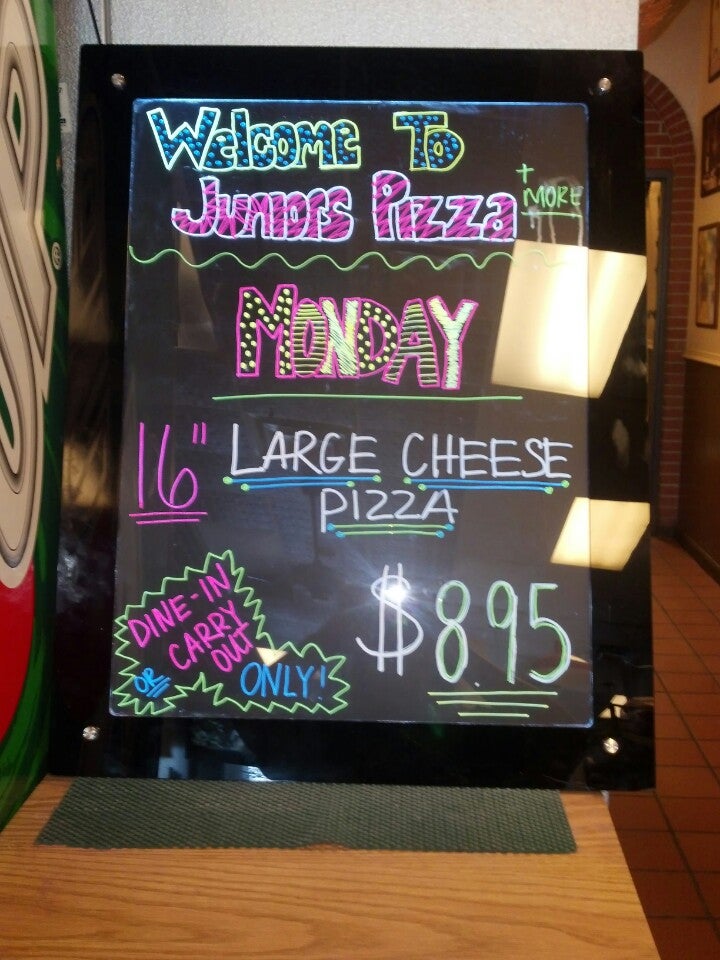 Welcome To
Juniors Pizza + MORE
MONDAY
16" LARGE CHEESE
PIZZA
DINE-IN
OR CARRY
OUT
ONLY!
$8.95